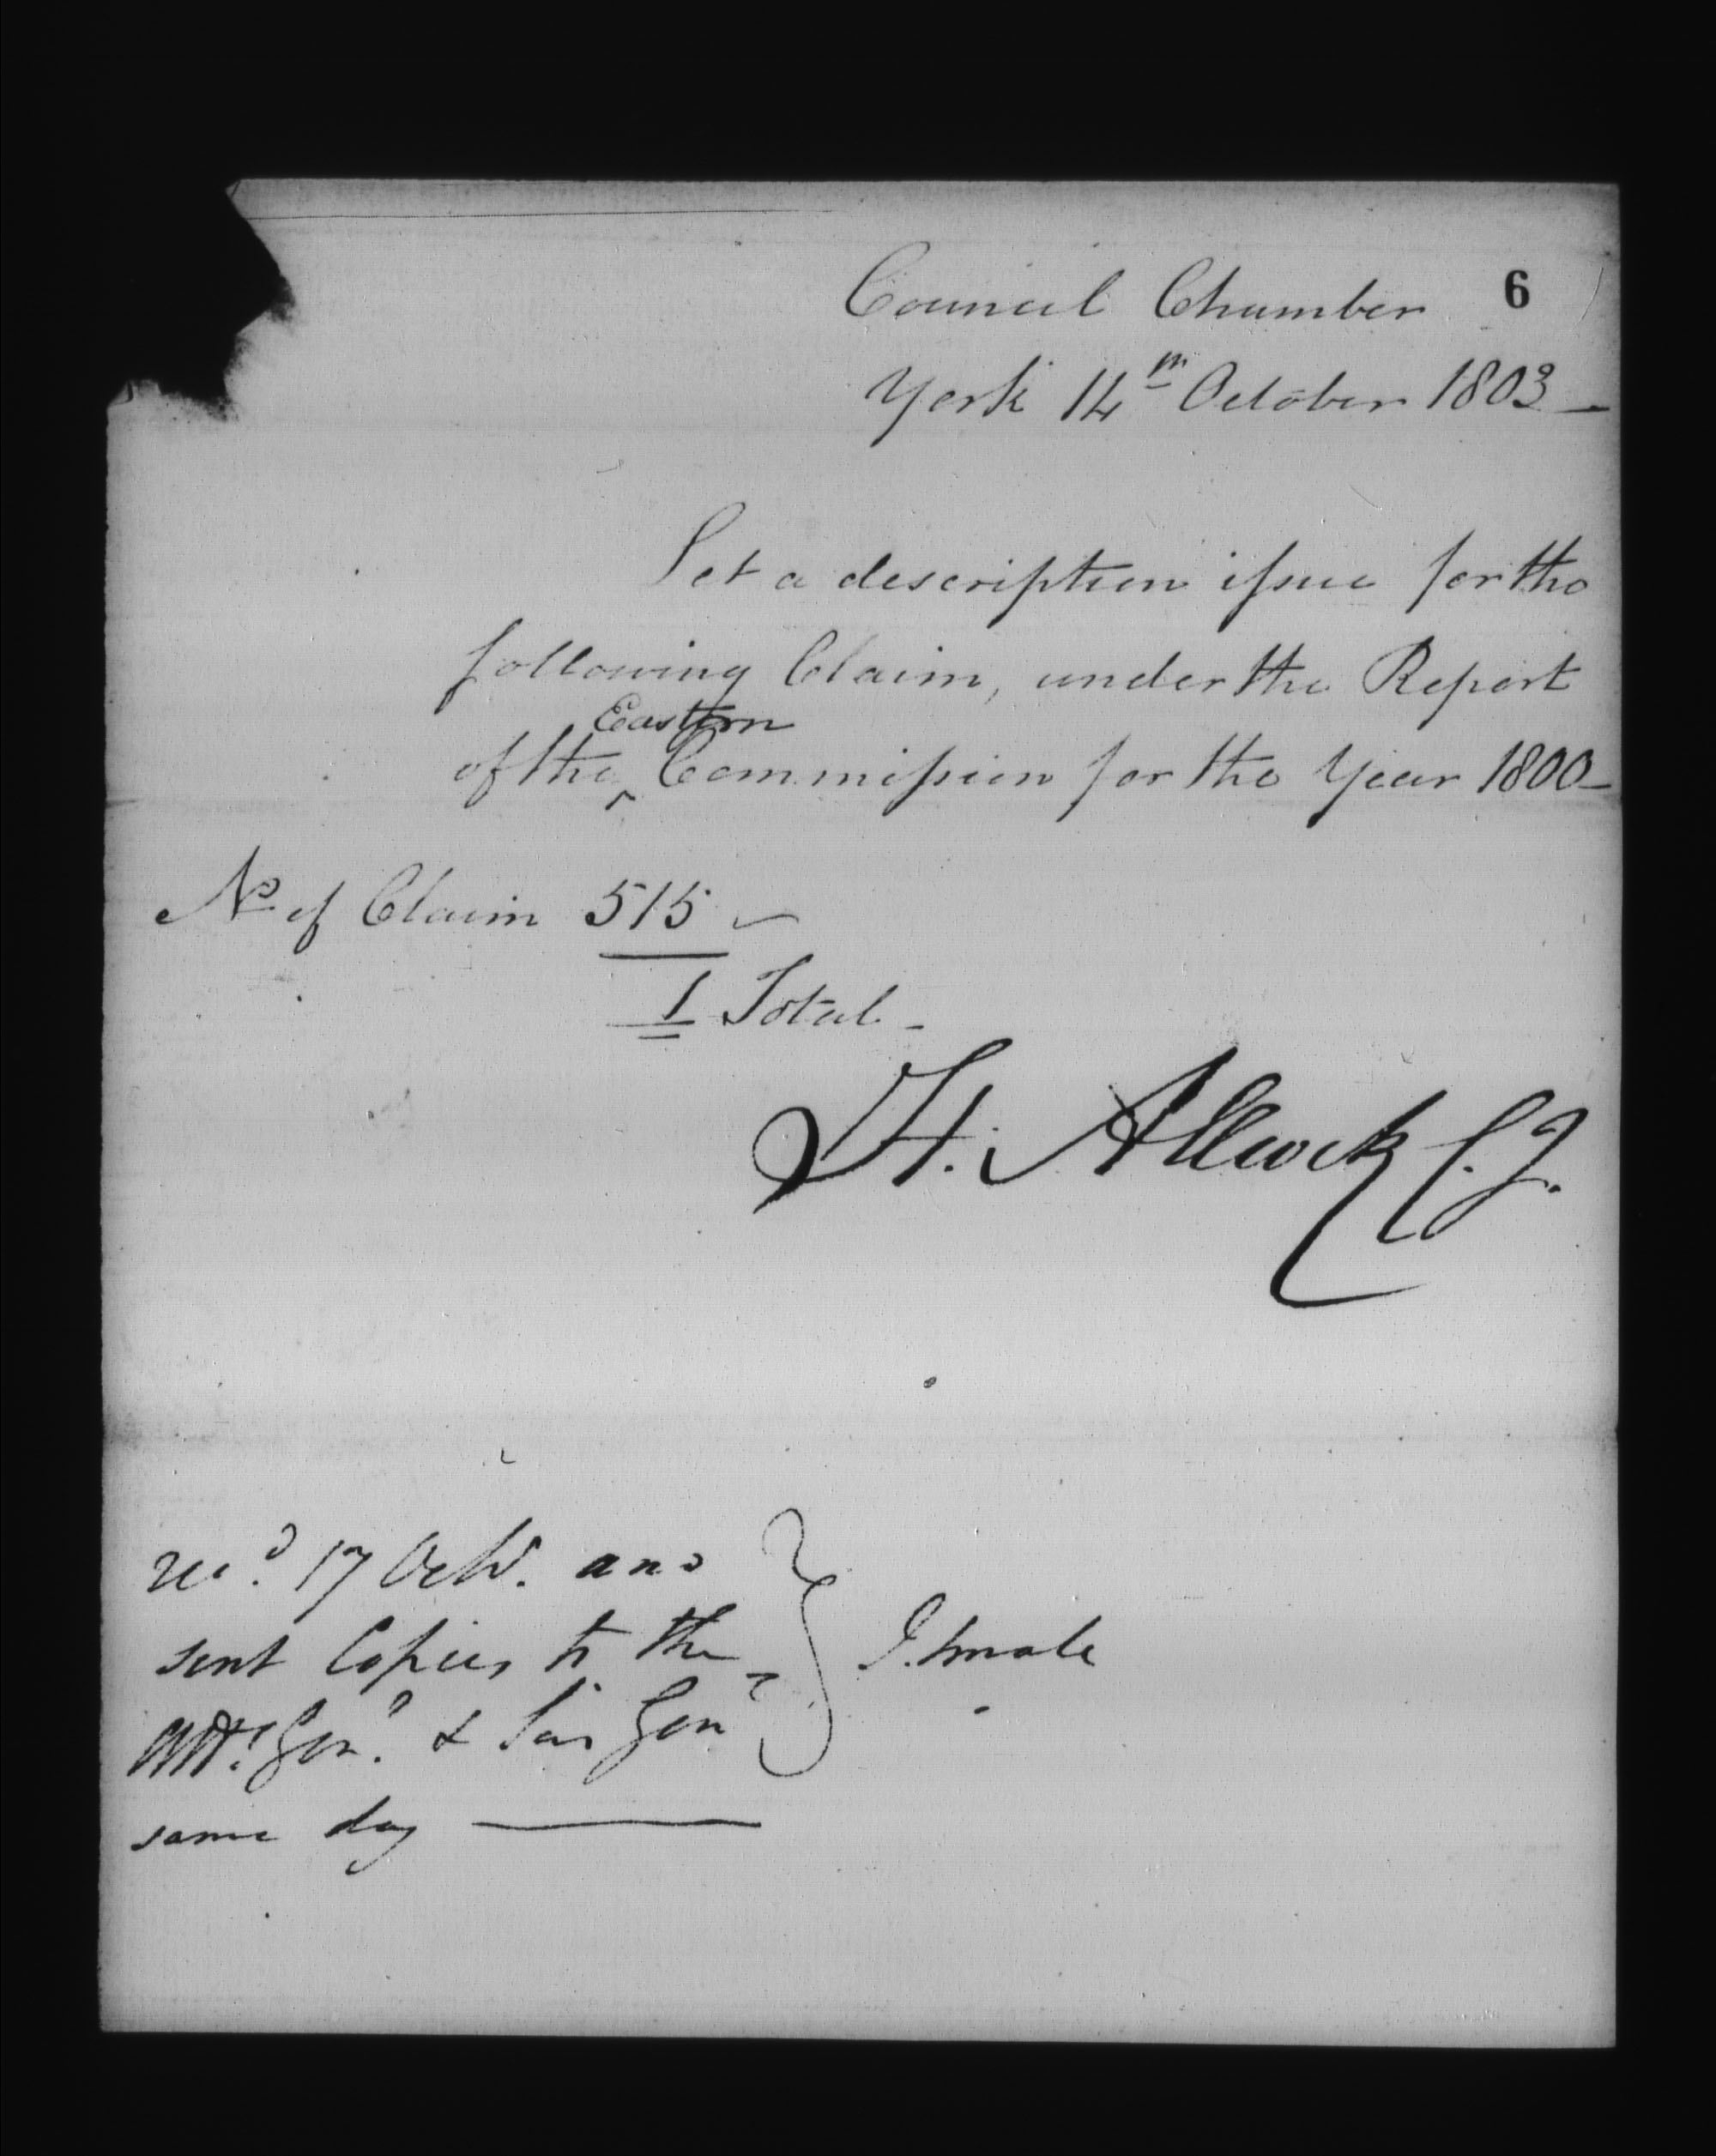 Council Chamber 6
York 14th October 1803 —
Let a description issue for the
following Claim, under the Report
Eastern
of the ^ Commission for the Year 1800 —
No of Claim 515
1 Total —
H. Allcock C.J.
recd. 17 Octr. and
sent Copies to the
Att. Genl. & Sur Genl
same day —
J. Small